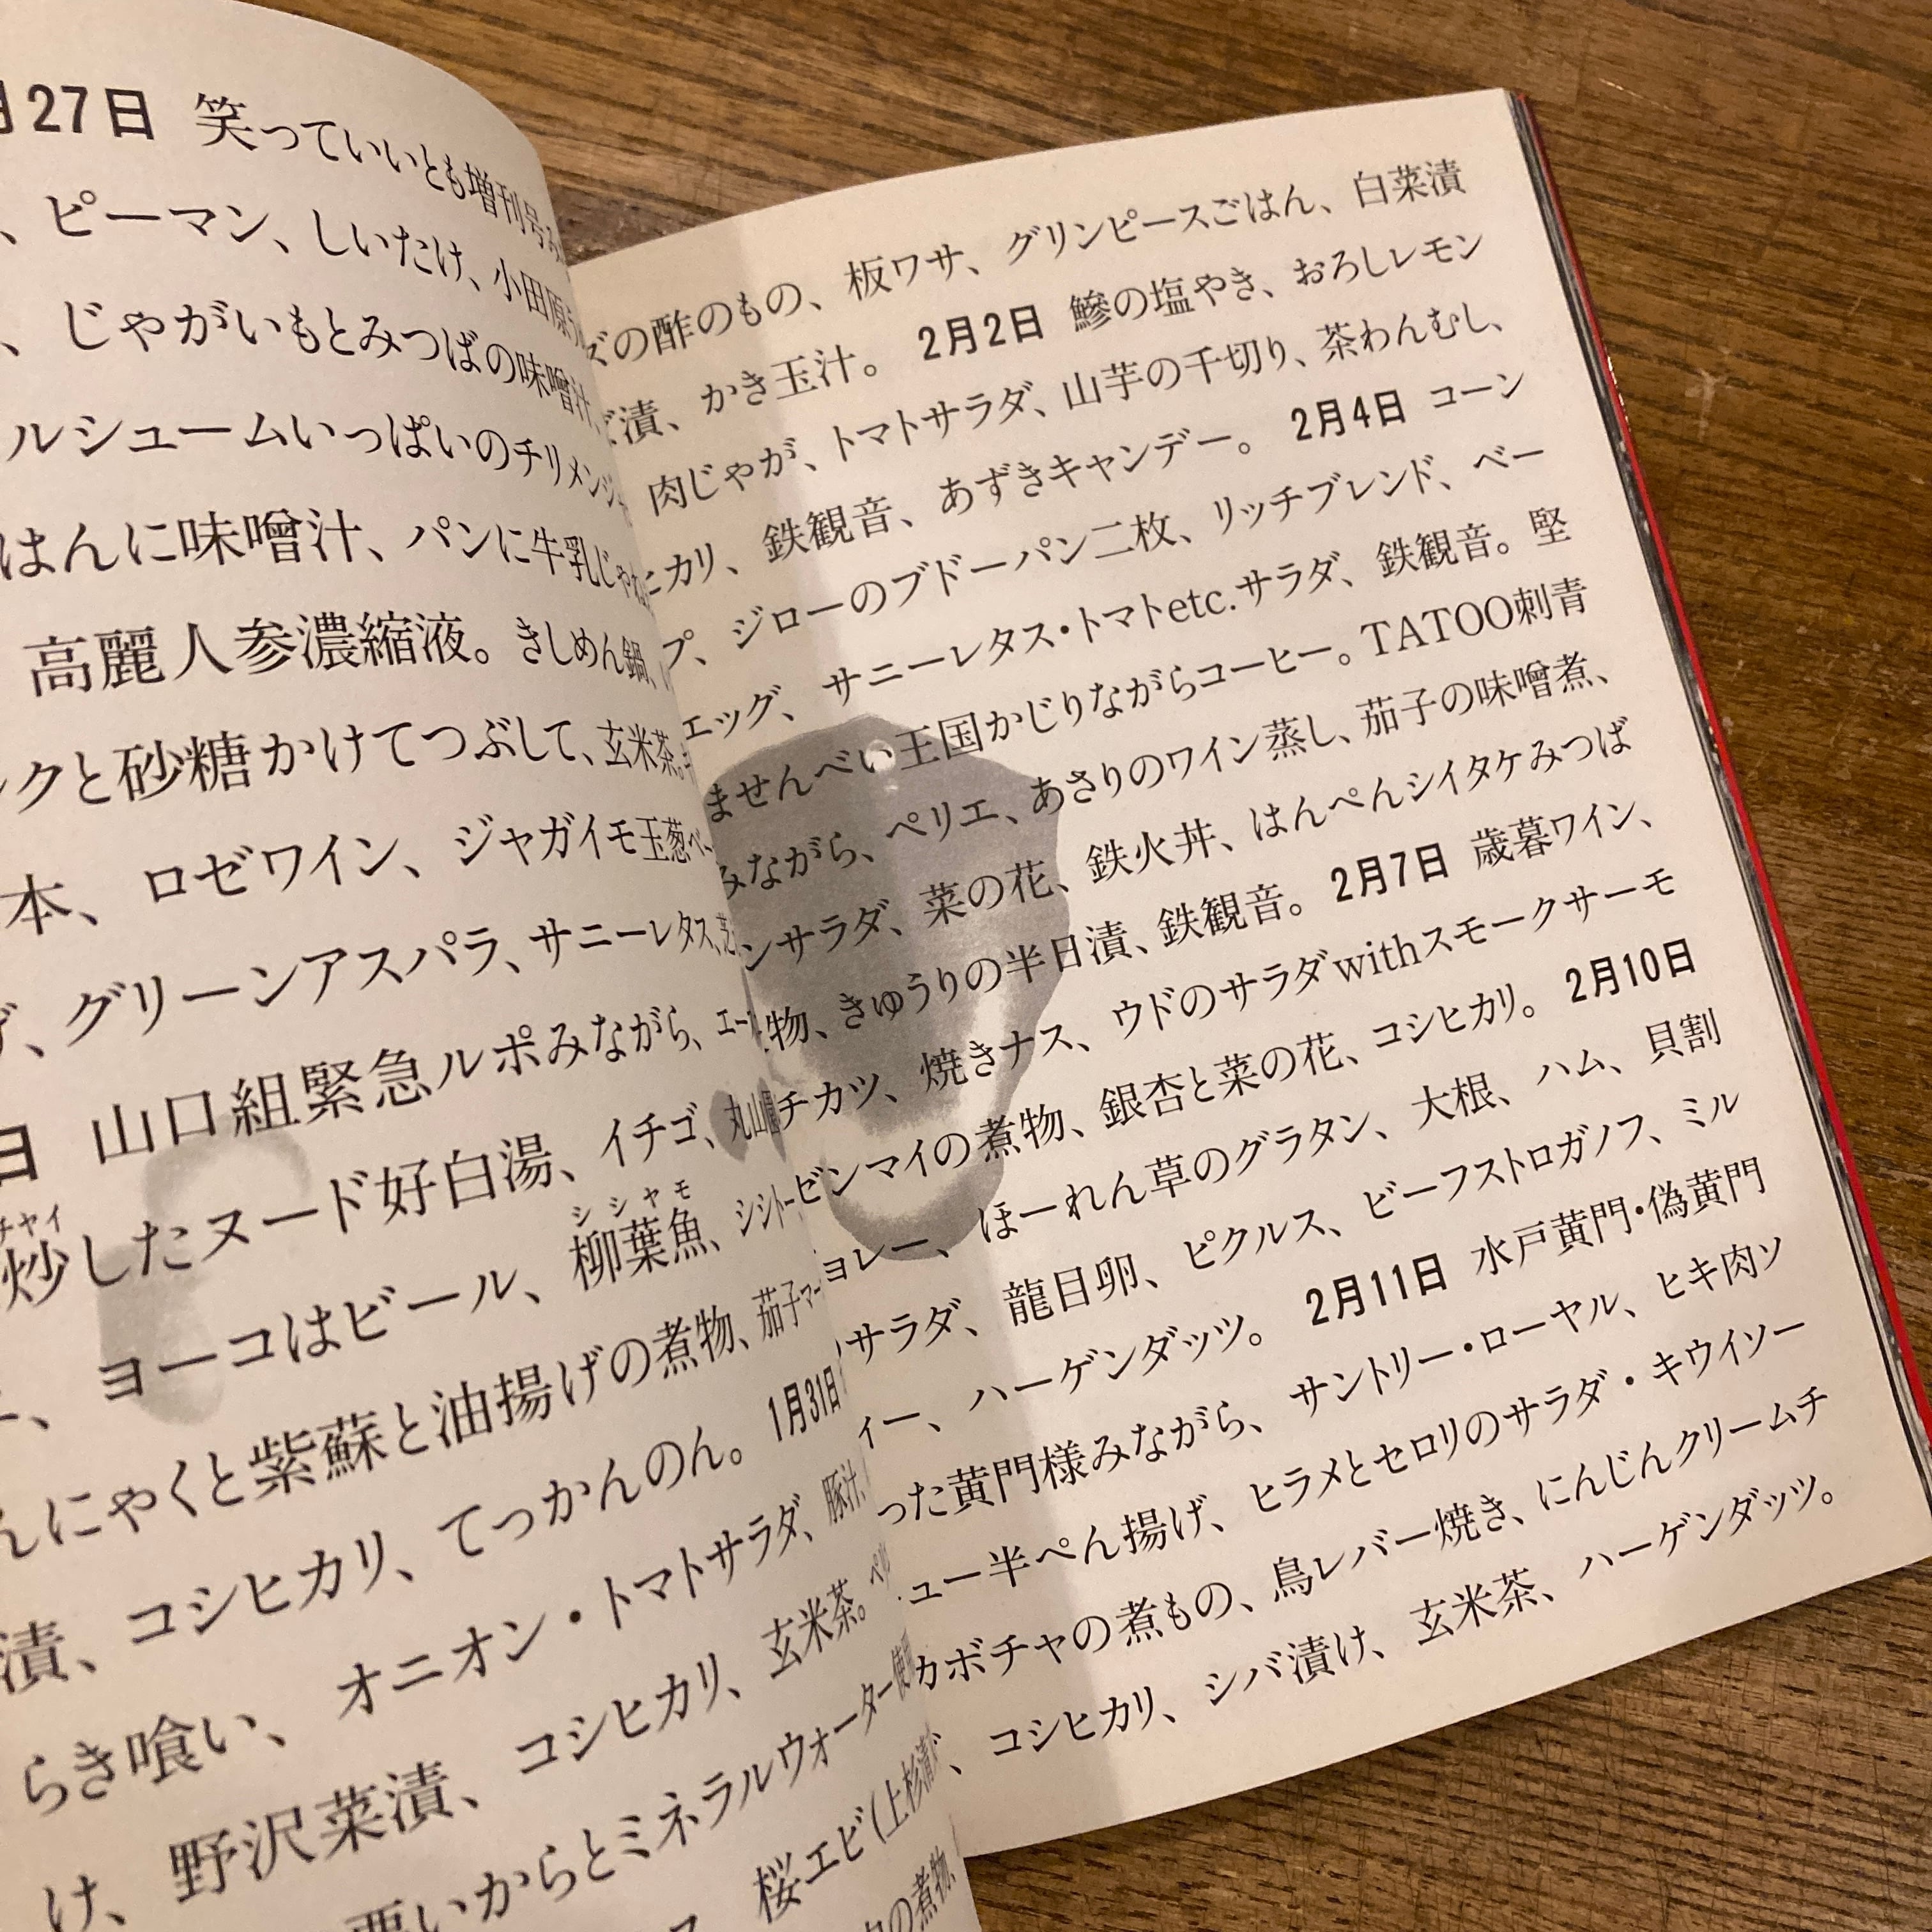 月27日 笑っていいとも増刊号み
、ピーマン、しいたけ、小田原
、じゃがいもとみつばの味噌汁、
ルシュームいっぱいのチリメンジ
はんに味噌汁、パンに牛乳じゃ
高麗人参濃縮液。きしめん鍋、
ックと砂糖かけてつぶして、玄米茶。
本、ロゼワイン、ジャガイモ玉葱ベー
ゲ、グリーンアスパラ、サニーレタス、
日 山口組緊急ルポみながら、エール
チヤイ
炒したヌード好白湯、イチゴ、丸山園
シシャモ
ヨーコはビール、柳葉魚、シシトー
んにゃくと紫蘇と油揚げの煮物、茄子マー
漬、コシヒカリ、てっかんのん。1月31日
らき喰い、オニオン・トマトサラダ、豚汁、
野沢菜漬、コシヒカリ、玄米茶。ペ
け、悪いからとミネラルウォーター使
桜エビ(上杉
の煮物、
ズの酢のもの、板ワサ、グリンピースごはん、白菜漬
漬、かき玉汁。 2月2日 鰺の塩やき、おろしレモン
肉じゃが、トマトサラダ、山芋の千切り、茶わんむし、
ヒカリ、鉄観音、あずきキャンデー。 2月4日 コーン
プ、ジローのブドーパン二枚、リッチブレンド、ベー
エッグ、サニーレタス・トマトetc.サラダ、鉄観音。堅
ませんべい王国かじりながらコーヒー。TATOO刺青
みながら、ペリエ、あさりのワイン蒸し、茄子の味噌煮、
ンサラダ、菜の花、鉄火丼、はんぺんシイタケみつば
物、きゅうりの半日漬、鉄観音。2月7日 歳暮ワイン、
チカツ、焼きナス、ウドのサラダwithスモークサーモ
ゼンマイの煮物、銀杏と菜の花、コシヒカリ。 2月10日
ョレー、ほーれん草のグラタン、大根、ハム、貝割
サラダ、龍目卵、ピクルス、ビーフストロガノフ、ミル
ィー、ハーゲンダッツ。 2月11日 水戸黄門・偽黄門
った黄門様みながら、サントリー・ローヤル、ヒキ肉ソ
ュー半ぺん揚げ、ヒラメとセロリのサラダ・キウイソー
カボチャの煮もの、鳥レバー焼き、にんじんクリームチ
、コシヒカリ、シバ漬け、玄米茶、ハーゲンダッツ。